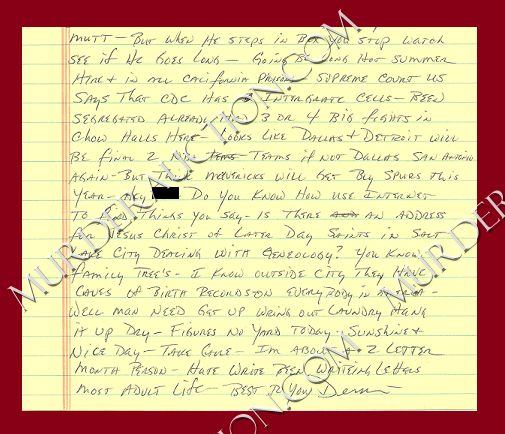 MUTT – BUT WHEN HE STEPS IN BOX YOU STOP WATCH
SEE IF HE GOES LONG – GOING BE LONG HOT SUMMER
HERE & IN ALL CALIFORNIA PRISON SUPREME COURT US
SAYS THAT CDC HAS INTERGRATE CELLS – BEEN
SEGREGATED ALREADY HAD 3 OR 4 BIG FIGHTS IN
CHOW HALLS HERE – LOOKS LIKE DALLAS & DETROIT WILL
BE FINAL 2 TEAMS IF NOT DALLAS SAN ANTONIO
AGAIN – BUT MAVERICKS WILL GET BY SPURS THIS
YEAR – HEY DO YOU KNOW HOW USE INTERNET
TO FIND THINGS YOU SAY – IS THERE AN ADDRESS
FOR JESUS CHRIST OF LATER DAY SAINTS IN SALT
LAKE CITY DEALING WITH GENEOLOGY? YOU KNOW
FAMILY TREE'S – I KNOW OUTSIDE CITY THEY HAVE
CAVES OF BIRTH RECORDS ON EVERYBODY IN AMERICA –
WELL MAN NEED GET UP WRING OUT LAUNDRY HANG
IT UP DRY – FIGURES NO YARD TODAY SUNSHINE &
NICE DAY – TAKE CARE – I'M ABOUT A 2 LETTER
MONTH PERSON – HATE WRITE BEEN WRITEING LETTERS
MOST ADULT LIFE – BEST TO YOU
MURDERAUCTION.COM